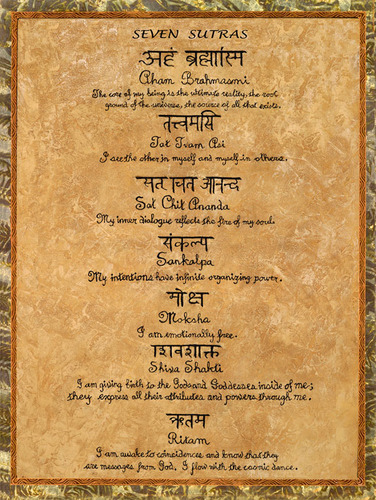 SEVEN SUTRAS
अहं ब्रह्मास्मि
Aham Brahmasmi
The core of my being is the ultimate reality, the root
ground of the universe, the source of all that exists.
तत्त्वमसि
Tat Tvam Asi
I see the other in myself and myself in others.
सत चित आनन्द
Sat Chit Ananda
My inner dialogue reflects the fire of my soul.
संकल्प
Sankalpa
My intentions have infinite organizing power.
मोक्ष
Moksha
I am emotionally free.
शिवशक्ति
Shiva Shakti
I am giving birth to the Gods and Goddesses inside of me;
they express all their attributes and powers through me.
ऋतम
Ritam
I am awake to coincidences and know that they
are messages from God. I flow with the cosmic dance.